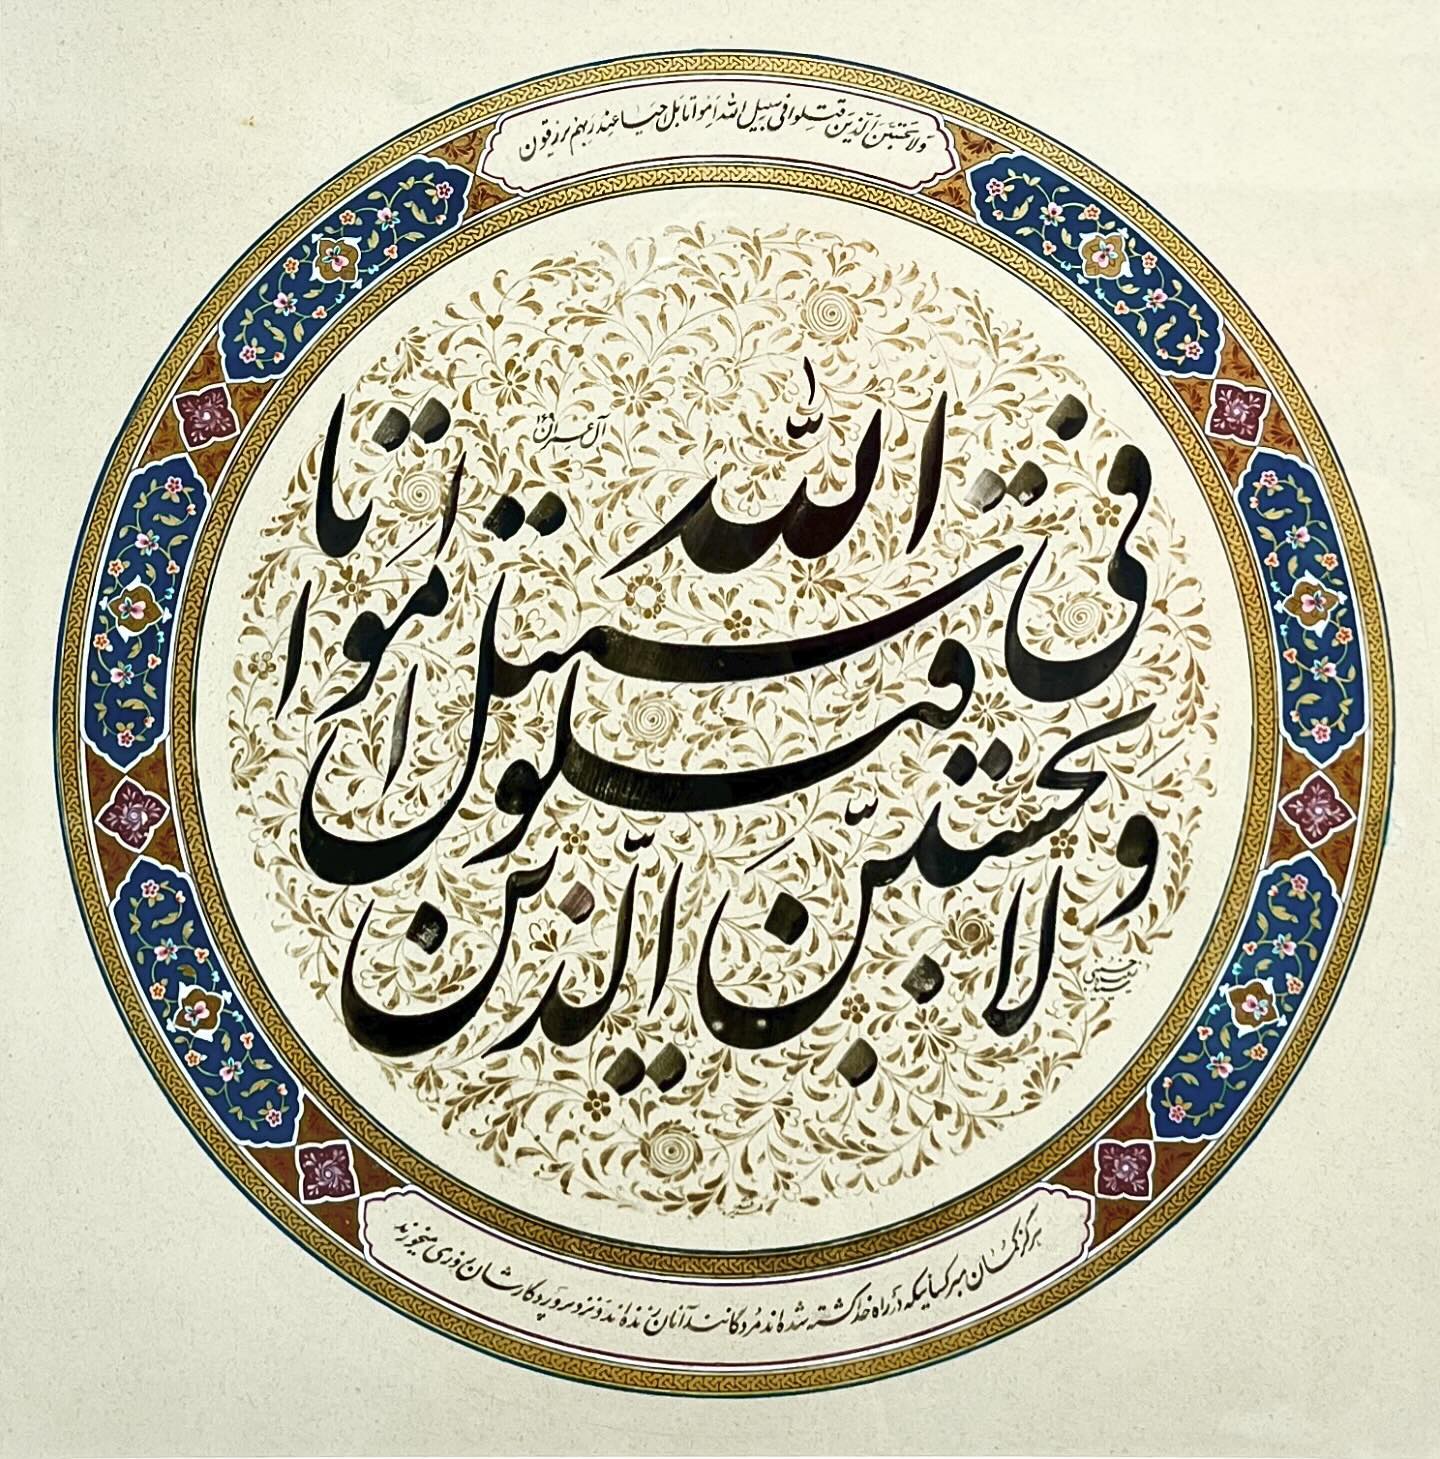 ولا تحسبن الذین قتلوا فی سبیل الله امواتا بل احیا عند ربهم یرزقون
ولا تحسبنّ الّذین
قتلوا
فی سبیل الله
امواتا
آل عمران ۱۶۹
هرگز گمان مبر کسانیکه در راه خدا کشته شده‌اند مردگانند آنان زنده‌اند و نزد پروردگارشان روزی میخورند